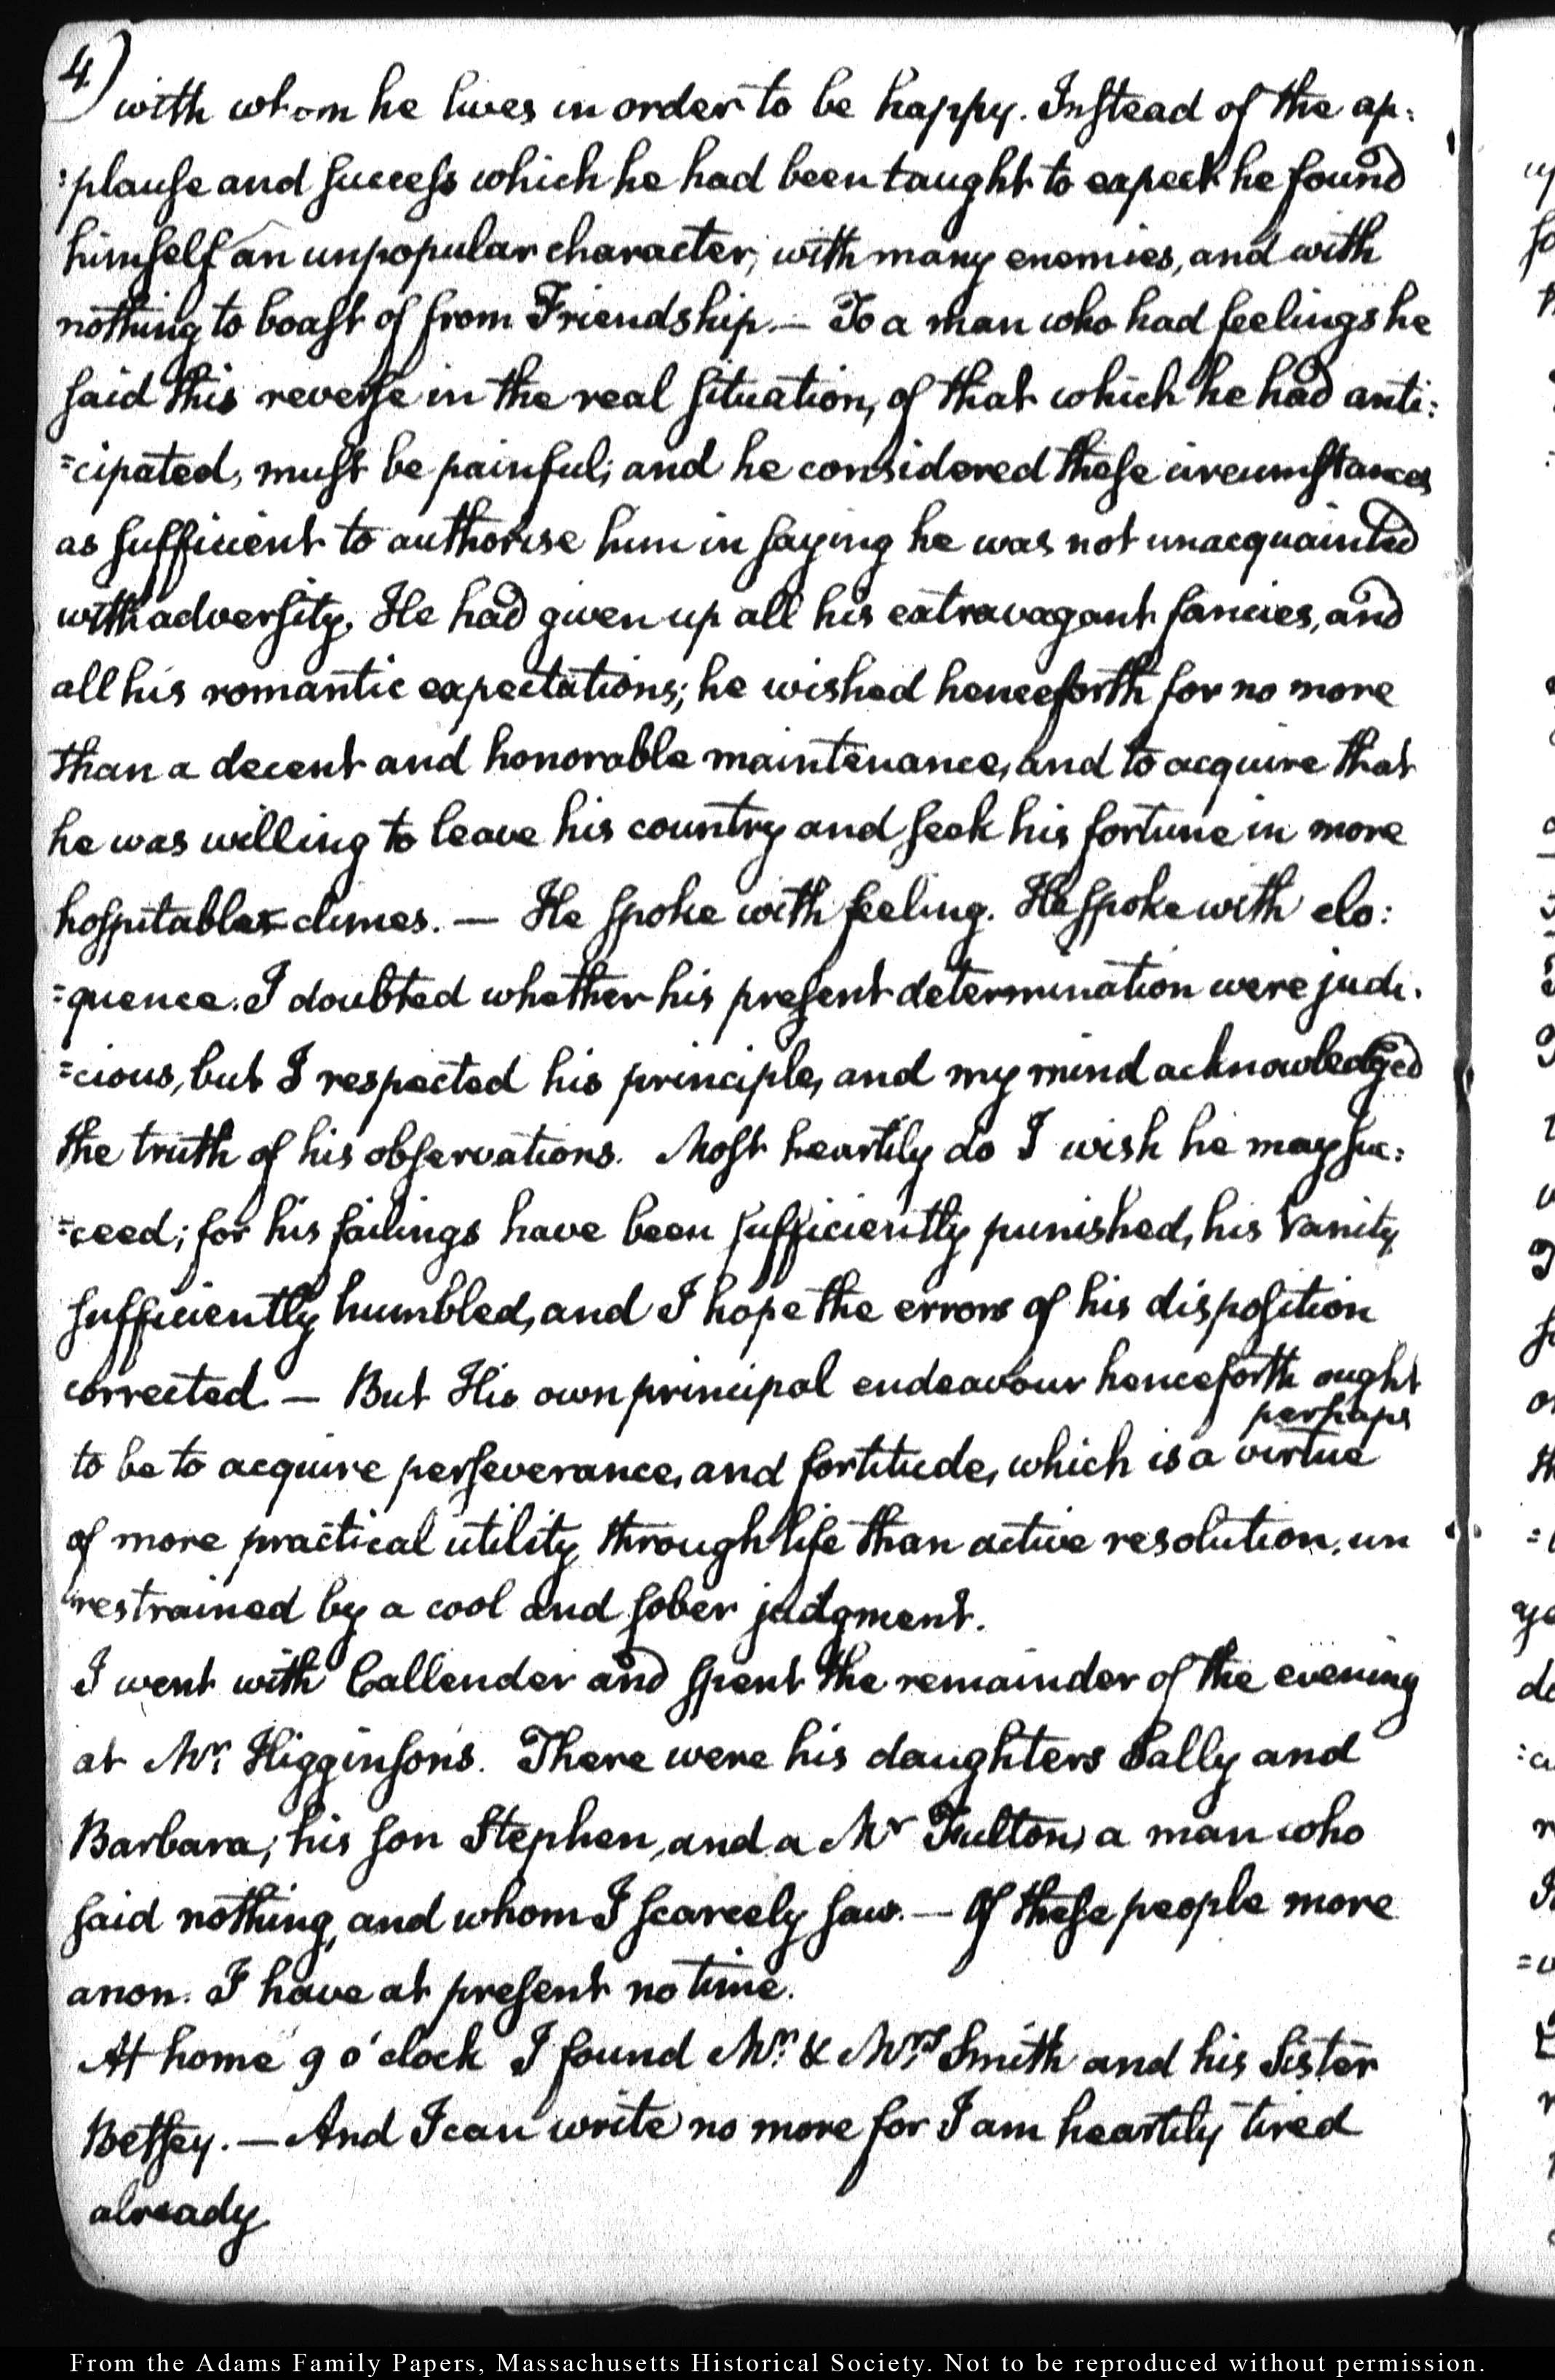 4)
with whom he lives in order to be happy. Instead of the ap:
:plause and success which he had been taught to expect he found
himself an unpopular character, with many enemies, and with
nothing to boast of from Friendship.— To a man who had feelings he
said this reverse in the real situation, of that which he had anti:
=cipated, must be painful; and he considered these circumstances
as sufficient to authorise him in saying he was not unacquainted
with adversity. He had given up all his extravagant fancies, and
all his romantic expectations; he wished henceforth for no more
than a decent and honorable maintenance, and to acquire that
he was willing to leave his country and seek his fortune in more
hospitable climes. — He spoke with feeling. He spoke with elo:
=quence. I doubted whether his present determination were judi.
=cious, but I respected his principle, and my mind acknowledged
the truth of his observations. Most heartily do I wish he may suc:
=ceed; for his failings have been sufficiently punished, his Vanity
sufficiently humbled, and I hope the errors of his disposition
corrected — But His own principal endeavour henceforth ought
perhaps
to be to acquire perseverance, and fortitude, which is a virtue
of more practical utility through life than active resolution, un
restrained by a cool and sober judgment.
I went with Callender and spent the remainder of the evening
at Mr. Higginson's. There were his daughters Sally and
Barbara; his son Stephen, and a Mr Fulton, a man who
said nothing, and whom I scarcely saw.— Of these people more
anon. I have at present no time.
At home 9 o'clock I found Mr. & Mrs. Smith and his Sister
Betsey. — And I can write no more for I am heartily tired
already
From the Adams Family Papers, Massachusetts Historical Society. Not to be reproduced without permission.